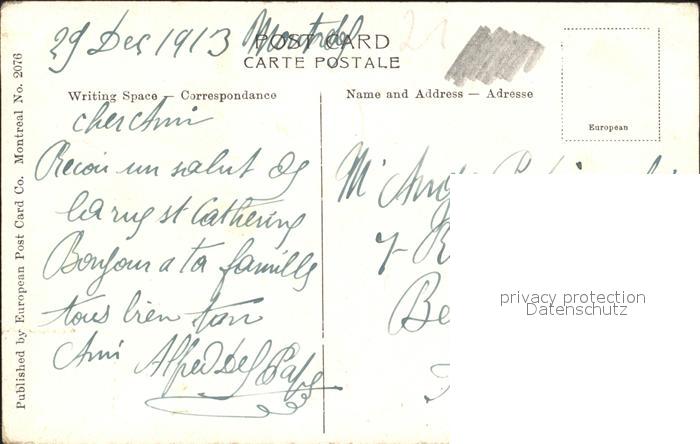 29 Dec 1913 Montréal
POST CARD
CARTE POSTALE
Writing Space — Correspondance
Name and Address — Adresse
European
cher Ami
Recoi un salut de
la rue st Catherine
Bonjour a ta famille
tous bien ton
Ami Alfred
Mr
7-
Be
privacy protection
Datenschutz
Published by European Post Card Co. Montreal No. 2076
21